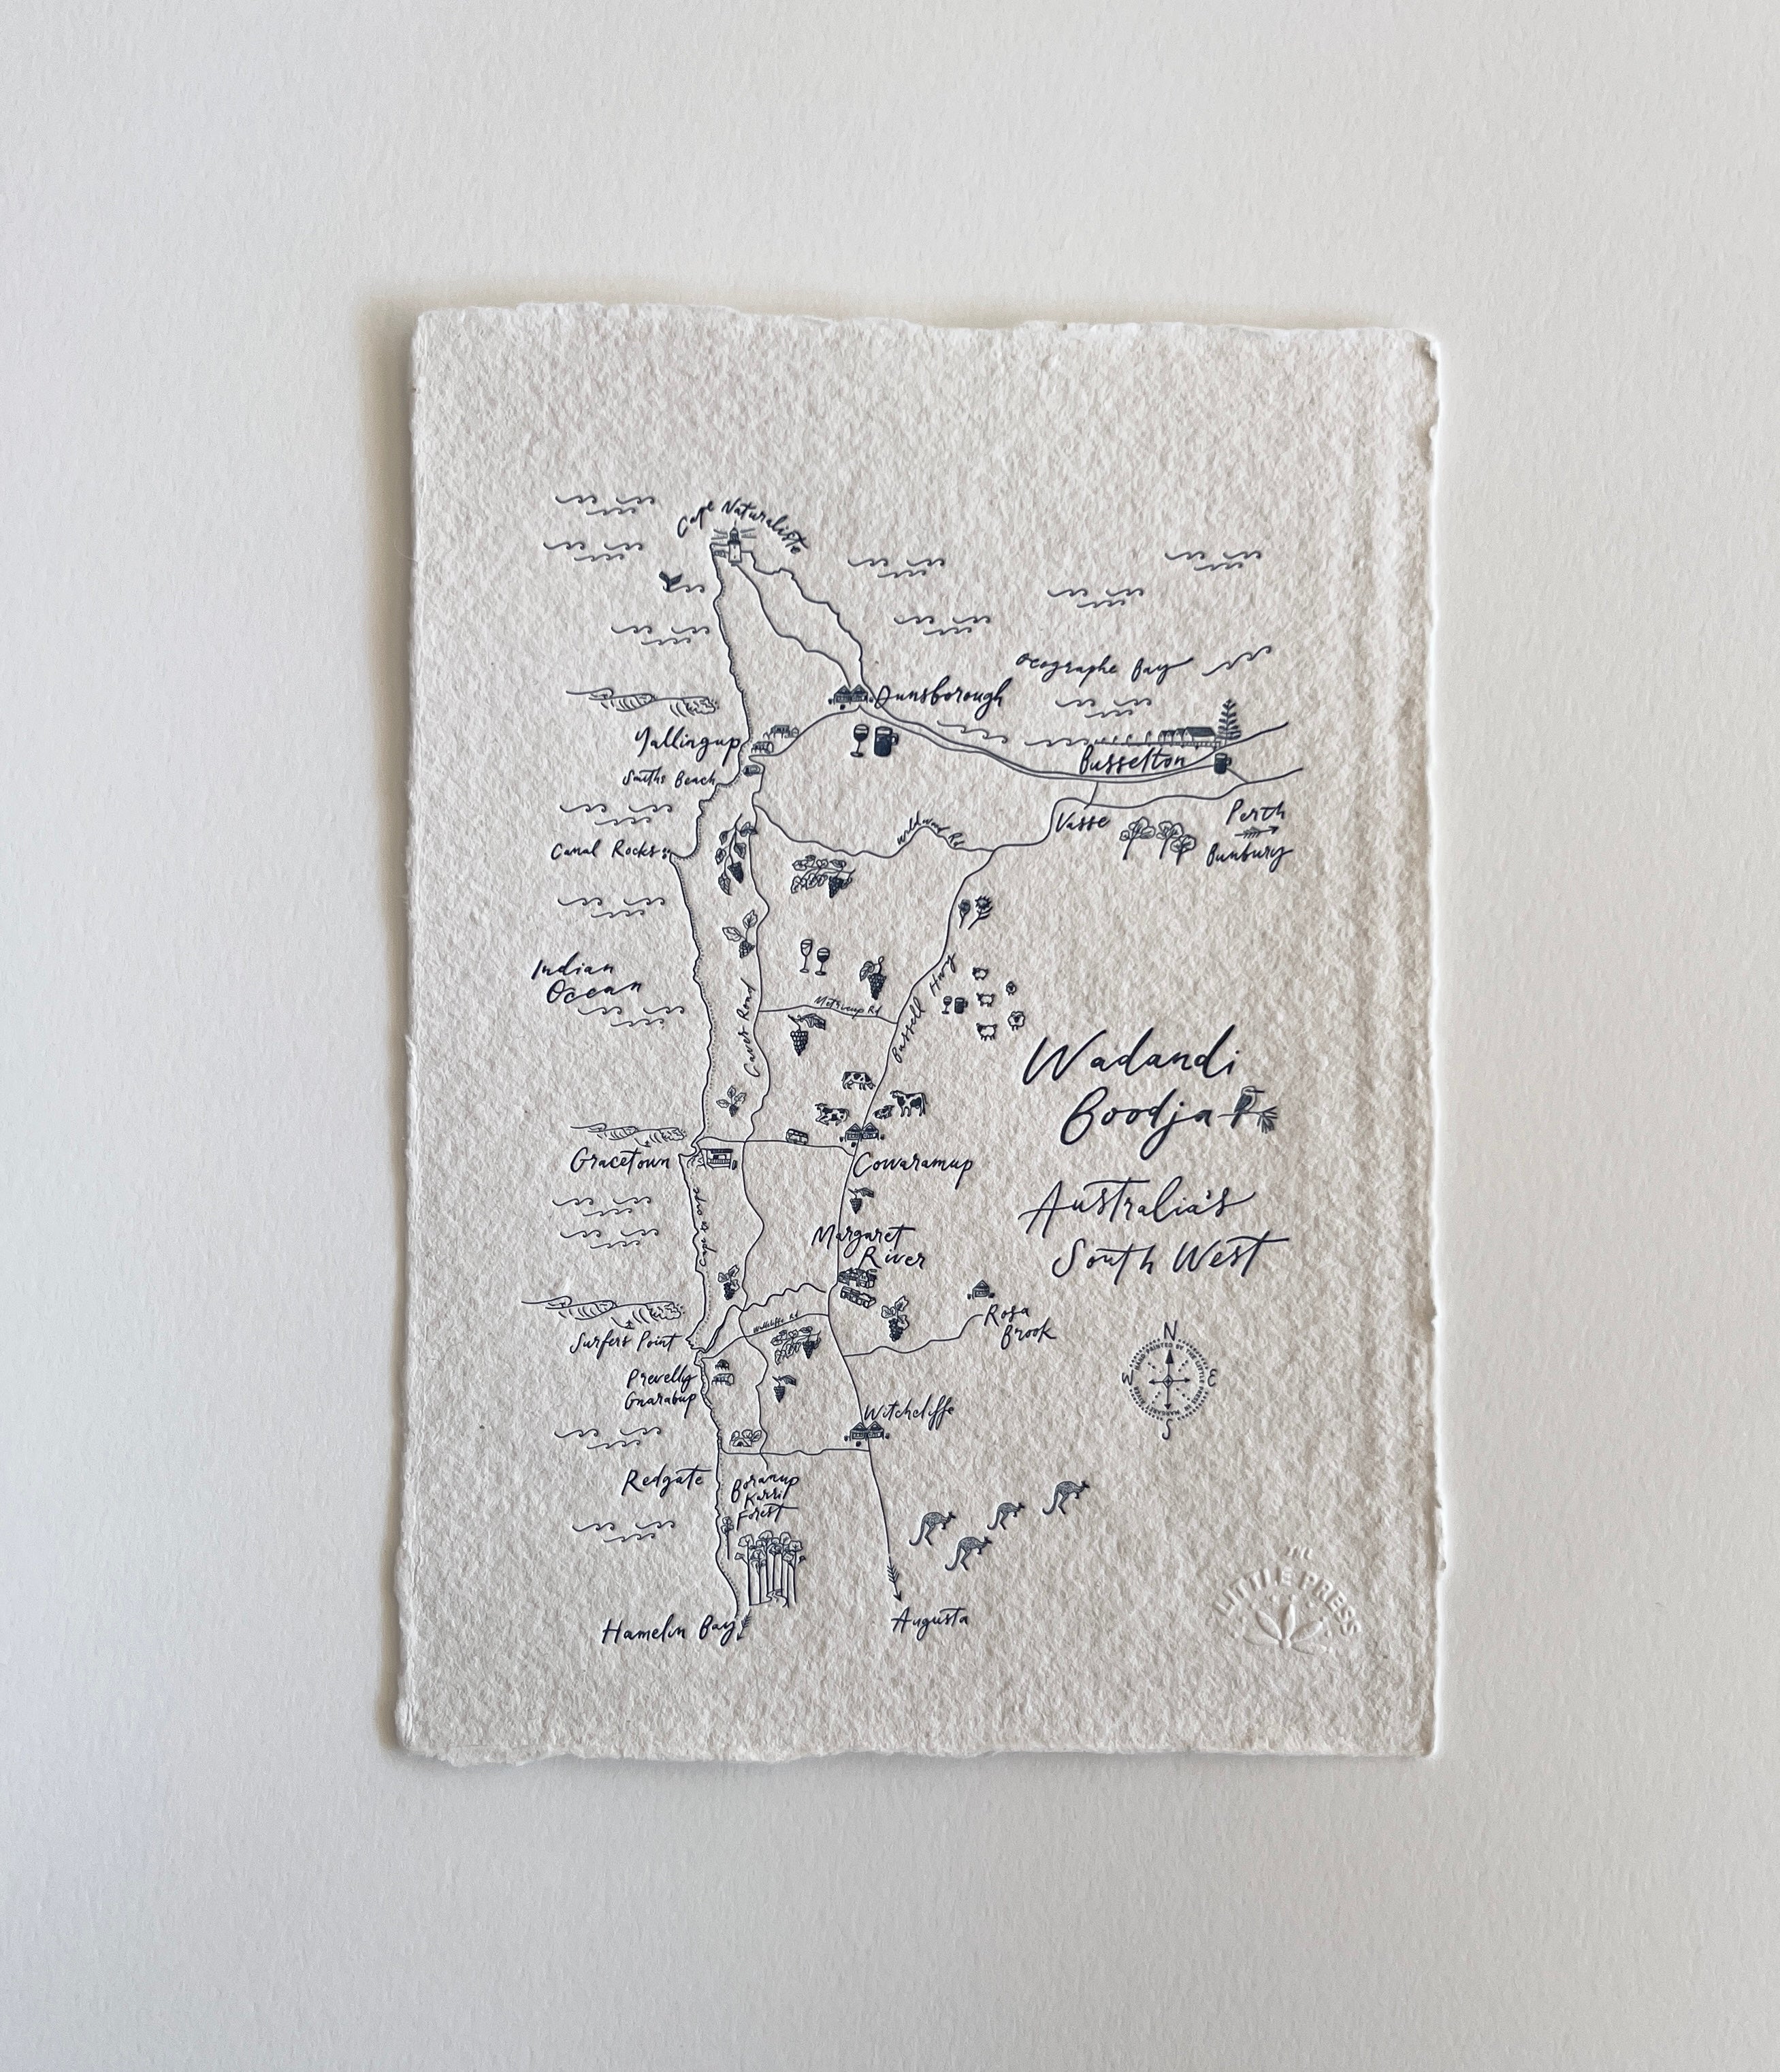 Cape Naturaliste
Geographe Bay
Dunsborough
Yallingup
Smiths Beach
Busselton
Vasse
Perth
Bunbury
Wildwood Rd
Canal Rocks
Indian
Ocean
Caves Road
Metricup Rd
Bussell Hwy
Wadandi
Boodja
Australia's
South West
Gracetown
Cowaramup
Cape to Cape
Margaret
River
Rosa
Brook
Surfers Point
Wallcliffe Rd
Prevelly
Gnarabup
N
W
E
S
Witchcliffe
Redgate
Boranup
Karri
Forest
Hamelin Bay
Augusta
LITTLE PRESS